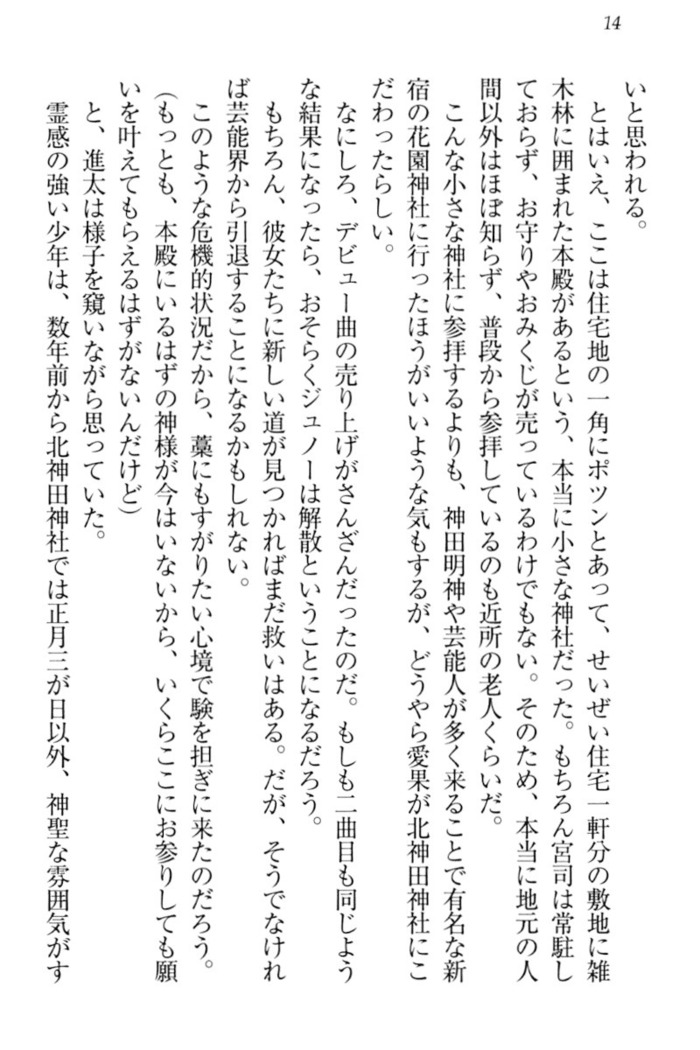 14
いと思われる。
とはいえ、ここは住宅地の一角にポツンとあって、せいぜい住宅一軒分の敷地に雑
木林に囲まれた本殿があるという、本当に小さな神社だった。もちろん宮司は常駐し
ておらず、お守りやおみくじが売っているわけでもない。そのため、本当に地元の人
間以外はほぼ知らず、普段から参拝しているのも近所の老人くらいだ。
こんな小さな神社に参拝するよりも、神田明神や芸能人が多く来ることで有名な新
宿の花園神社に行ったほうがいいような気もするが、どうやら愛果が北神田神社にこ
だわったらしい。
なにしろ、デビュー曲の売り上げがさんざんだったのだ。もしも二曲目も同じよう
な結果になったら、おそらくジュノーは解散ということになるだろう。
もちろん、彼女たちに新しい道が見つかればまだ救いはある。だが、そうでなけれ
ば芸能界から引退することになるかもしれない。
このような危機的状況だから、藁にもすがりたい心境で験を担ぎに来たのだろう。
(もっとも、本殿にいるはずの神様が今はいないから、いくらここにお参りしても願
いを叶えてもらえるはずがないんだけど)
と、進太は様子を窺いながら思っていた。
霊感の強い少年は、数年前から北神田神社では正月三が日以外、神聖な雰囲気がす